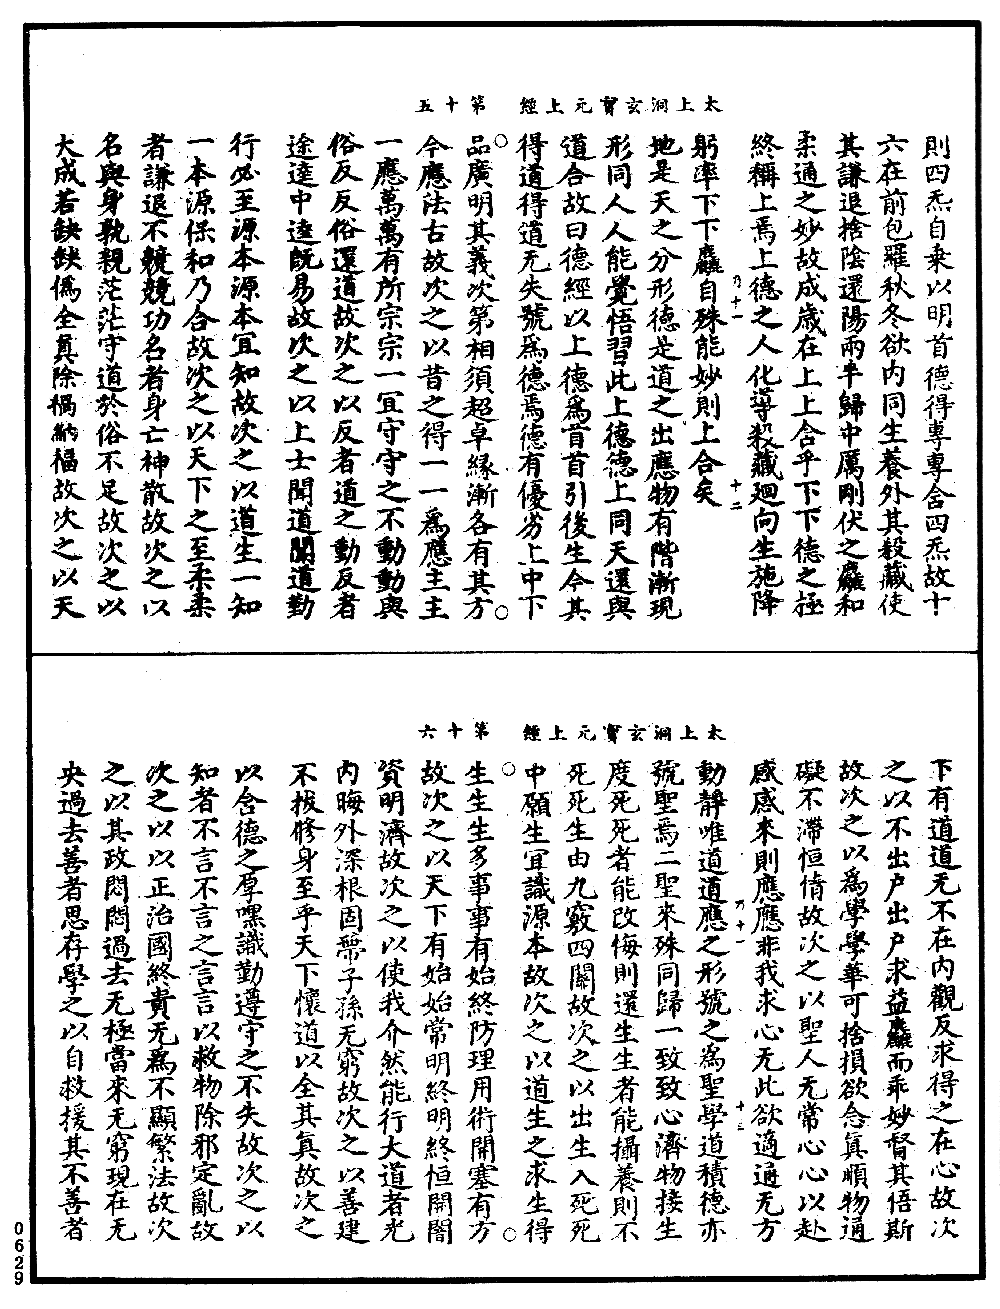 太上洞玄寶元上經　第十五
則四炁自乘以明首德得專專含四炁故十
六在前包羅秋冬欲内同生養外其殺藏使
其謙退捨陰還陽兩半歸中厲剛伏之麤和
柔通之妙故成歲在上上合乎下下德之極
終稱上焉上德之人化導殺藏廻向生施降
躬率下下麤自殊能妙則上合矣
地是天之分形德是道之出應物有階漸現
形同人人能覺悟習此上德德上同天還與
道合故曰德經以上德爲首首引後生令其
得道得道无失號爲德焉德有優劣上中下
品廣明其義次第相須超卓緣漸各有其方
今應法古故次之以昔之得一一爲應主主
一應萬萬有所宗宗一冝守守之不動動與
俗反反俗還道故次之以反者道之動反者
途逵中逵旣易故次之以上士聞道聞道勤
行必至源本源本冝知故次之以道生一知
一本源保和乃合故次之以天下之至柔柔
者謙退不競競功名者身亡神散故次之以
名與身孰親茫茫守道於俗不足故次之以
大成若缺缺僞全真除禍納福故次之以天
乃十一
十二
太上洞玄寶元上經　第十六
下有道道无不在内觀反求得之在心故次
之以不出户出户求益麤而乖妙督其悟斯
故次之以爲學學華可捨損欲念真順物通
礙不滯恒脩故次之以聖人无常心心以赴
感感來則應應非我求心无此欲適通无方
動靜唯道道應之形號之爲聖學道積德亦
號聖焉二聖來殊同歸一致致心濟物接生
度死死者能改悔則還生生者能攝養則不
死死生由九竅四關故次之以出生入死死
中願生冝識源本故次之以道生之求生得
生生生多事事有始終防理用術開塞有方
故次之以天下有始始常明終明終恒開闇
資明濟故次之以使我介然能行大道者光
内晦外深根固蔕子孫无窮故次之以善建
不拔修身至乎天下懷道以全其真故次之
以含德之厚嘿識勤遵守之不失故次之以
知者不言不言之言言以救物除邪定亂故
次之以以正治國終貴无爲不顯繁法故次
之以其政悶悶過去无極當來无窮現在无
央過去善者思存學之以自救援其不善者
乃十一
十三
0629